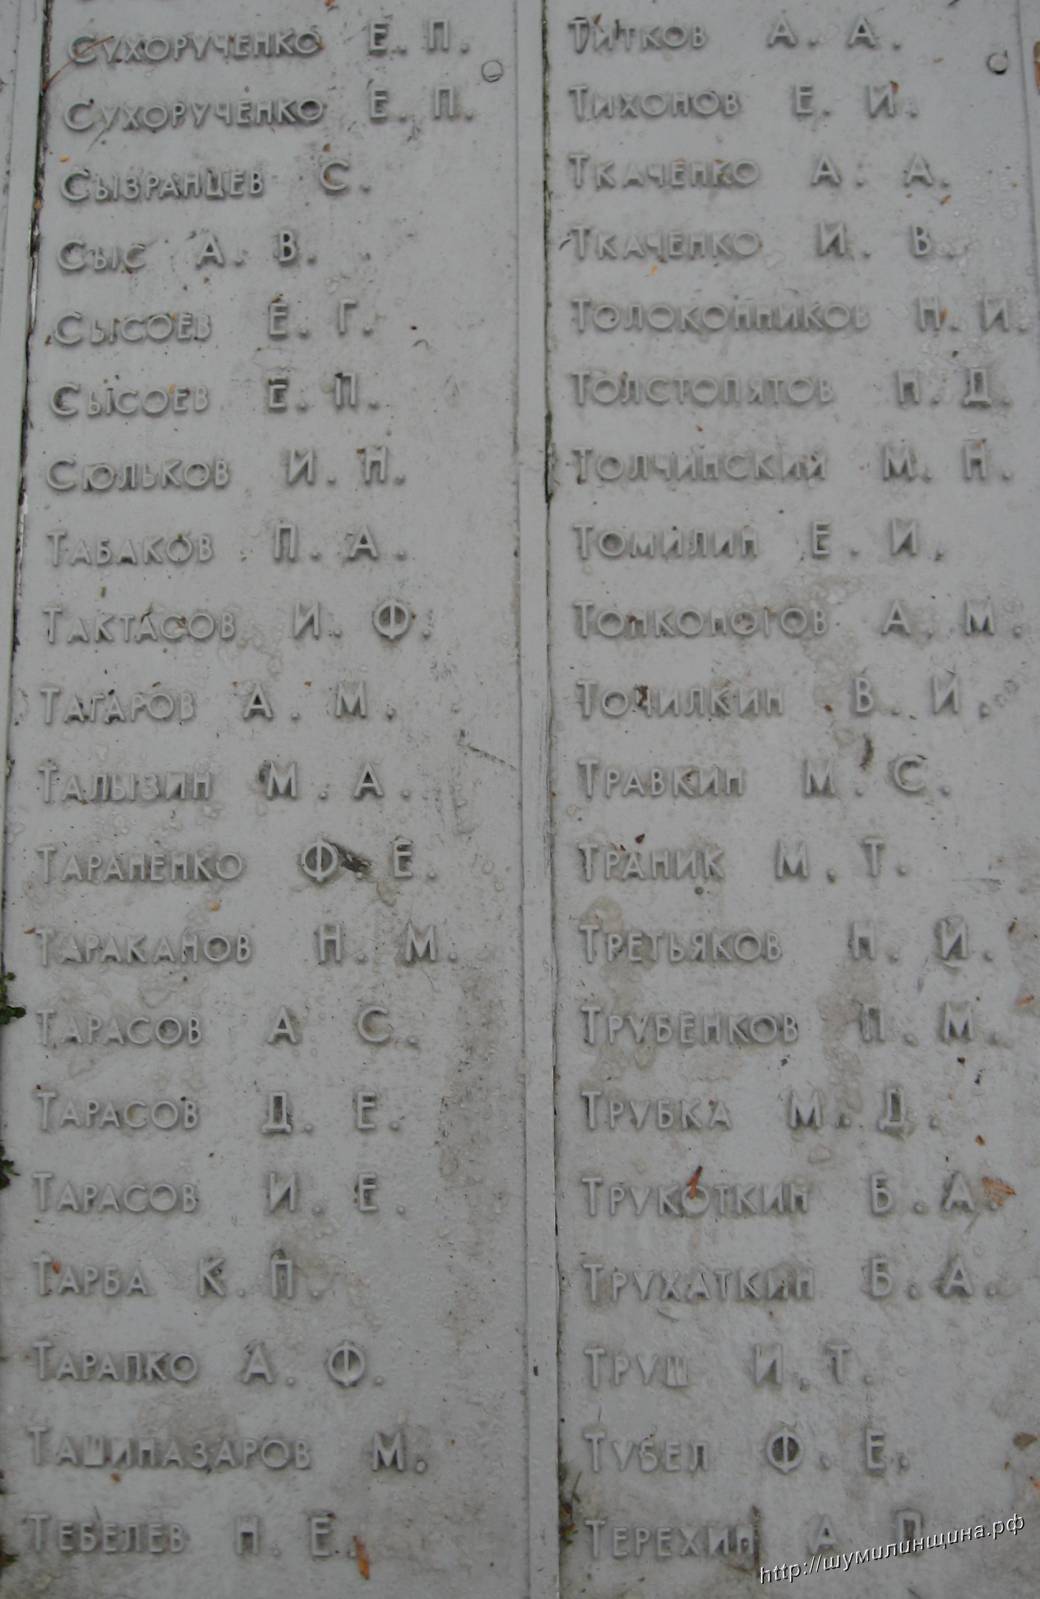 Сухорученко Е. П.
Сухорученко Е. П.
Сызранцев С.
Сыс А. В.
Сысоев Е. Г.
Сысоев Е. П.
Сюльков И. Н.
Табаков П. А.
Тактасов И. Ф.
Тагаров А. М.
Талызин М. А.
Тараненко Ф. Е.
Тараканов Н. М.
Тарасов А С.
Тарасов Д. Е.
Тарасов И. Е.
Тарба К. П.
Тарапко А. Ф.
Ташиназаров М.
Тебелев Н. Е.
Титков А. А.
Тихонов Е. И.
Ткаченко А. А.
Ткаченко И. В.
Толоконников Н. И.
Толстопятов Н. Д.
Толчинский М. Н.
Томилин Е. И.
Тонконогов А. М.
Точилкин В. И.
Травкин М. С.
Траник М. Т.
Третьяков Н. И.
Трубенков П. М.
Трубка М. Д.
Трукоткин Б. А.
Трухаткин Б. А.
Труш И. Т.
Тубел Ф. Е.
Терехин А П
http://шумилинщина.рф